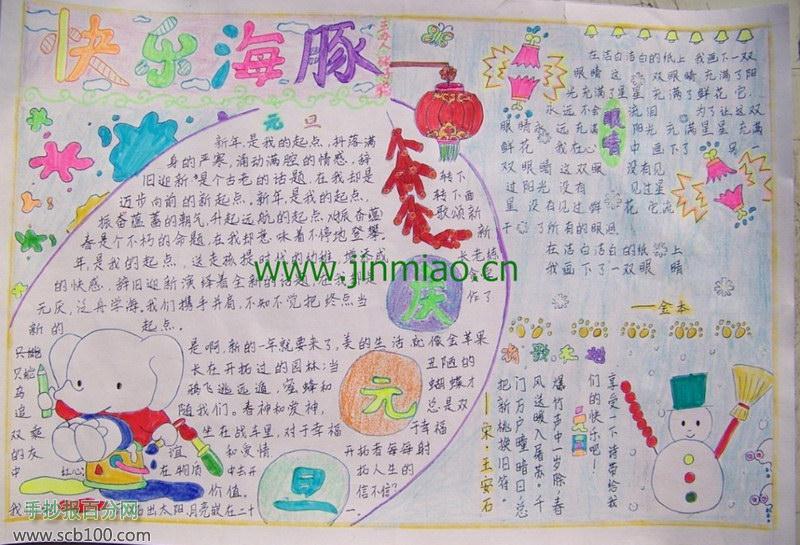 快乐海豚
元旦
新年是我的起点,抖落满
身的严寒,涌动满腔的情感,辞
旧迎新是个古老的话题,在我却是
迈步向前的新起点。新年是我的起点,
振奋蕴蓄的朝气,升起远航的起点
春是个不朽的命题,在我却意味着不停地登攀
年是我的起点,送走
的快感,辞旧迎新演绎着全新的话题,在我却是
元庆,泛舟学海,我们携手并肩,不知不觉把终点当
新的 起点。
是啊,新的一年就要来了,美的生活就像金苹果
长在开拓过的园林;当 丑陋的
鹅飞逃远遁,蜜蜂和 蝴蝶才
随我们。春神和爱神 总是双
坐在战车里,对于幸福
和爱情 开拓者每每射
拓人生的
价值。 信不信?
出太阳,月亮就在二十一
转下
转下面
歌颂新
庆
元
旦
在洁白洁白的纸上 我画下一双
眼睛 这 双眼睛充满了阳
光充满了星星 充满了鲜花 它
永远不会 流泪 为了让这双
眼睛永 远充满 阳光充满星星 充满
鲜花 我在心 中画下了 另一
双眼睛 这双眼 没有见
过阳光 没有 见过星
星 没有见过鲜 花 它流
干 了所有的眼泪
在洁白洁白的纸 上
我画下了一双眼 睛
眼睛
——金本
爆竹声中一岁除,春
风送暖入屠苏。千
门万户曈曈日,总
把新桃换旧符。
——宋·王安石
享受一下诗带给我
们的快乐吧!
www.jinmiao.cn
手抄报百分网
www.scb100.com